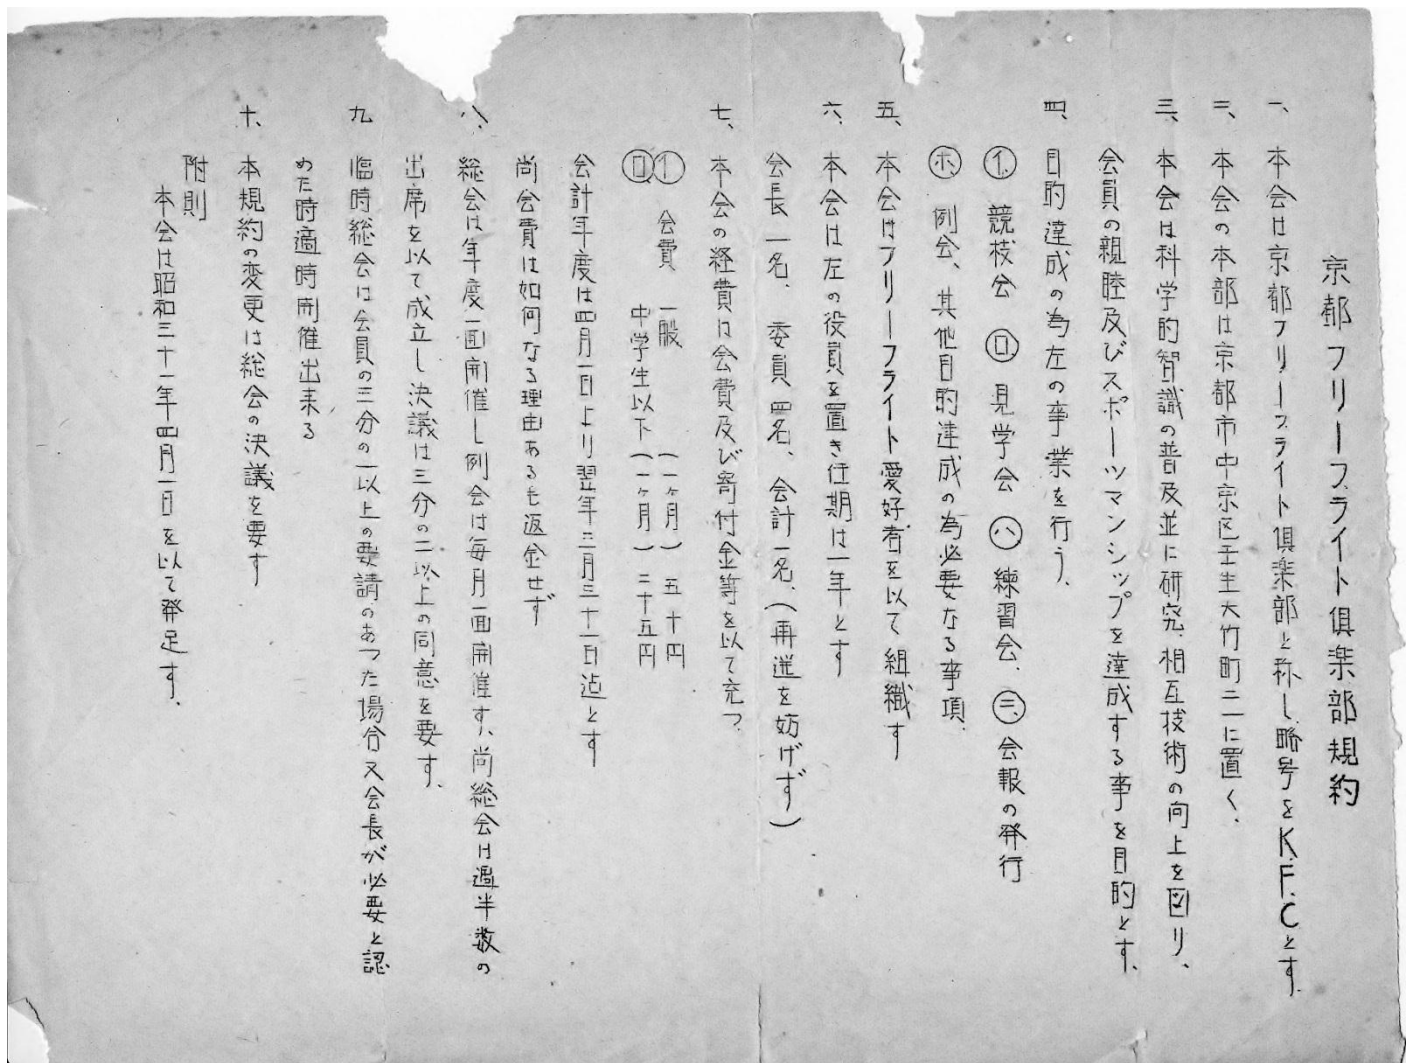 京都フリーフライト倶楽部規約
一、本会は京都フリーフライト倶楽部と称し略号をK.F.Cとす.
二、本会の本部は京都市中京区壬生大竹町二一に置く.
三、本会は科学的智識の普及並に研究、相互技術の向上を図り、
会員の親睦及びスポーツマンシップを達成する事を目的とす、
四、目的達成の為左の事業を行う、
㋑競技会 ㋺見学会 ㋩練習会、 ㊁会報の発行
㋭例会、其他目的達成の為必要なる事項
五、本会はフリーフライト愛好者を以て組織す
六、本会は左の役員を置き任期は一年とす
会長一名、委員四名、会計一名、(再選を妨げず)
七、本会の経費は会費及び寄付金等を以て充つ
㋑会費 一般 (一ヶ月) 五十円
㋺ 中学生以下(一ヶ月)二十五円
会計年度は四月一日より翌年三月三十一日迠とす
尚会費は如何なる理由あるも返金せず
八、総会は年度一回開催し例会は毎月一回開催す、尚総会は過半数の
出席を以て成立し決議は三分の二以上の同意を要す、
九 臨時総会は会員の三分の一以上の要請のあつた場合又会長が必要と認
めた時適時開催出来る
十、本規約の変更は総会の決議を要す
附則
本会は昭和三十一年四月一日を以て発足す、